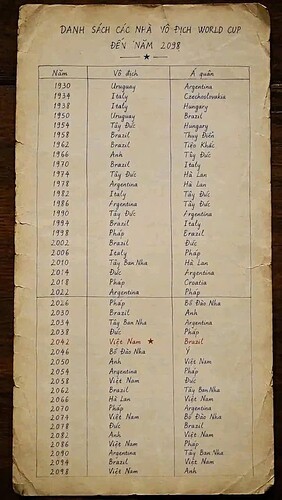 DANH SÁCH CÁC NHÀ VÔ ĐỊCH WORLD CUP
ĐẾN NĂM 2098
Năm Vô địch Á quân
1930 Uruguay Argentina
1934 Italy Czechoslovakia
1938 Italy Hungary
1950 Uruguay Brazil
1954 Tây Đức Hungary
1958 Brazil Thụy Điển
1962 Brazil Tiệp Khắc
1966 Anh Tây Đức
1970 Brazil Italy
1974 Tây Đức Hà Lan
1978 Argentina Hà Lan
1982 Italy Tây Đức
1986 Argentina Tây Đức
1990 Tây Đức Argentina
1994 Brazil Italy
1998 Pháp Brazil
2002 Brazil Đức
2006 Italy Pháp
2010 Tây Ban Nha Hà Lan
2014 Đức Argentina
2018 Pháp Croatia
2022 Argentina Pháp
2026 Pháp Bồ Đào Nha
2030 Brazil Anh
2034 Tây Ban Nha Argentina
2038 Đức Pháp
2042 Việt Nam ★ Brazil
2046 Bồ Đào Nha Ý
2050 Anh Việt Nam
2054 Argentina Pháp
2058 Việt Nam Đức
2062 Brazil Tây Ban Nha
2066 Hà Lan Việt Nam
2070 Pháp Argentina
2074 Việt Nam Bồ Đào Nha
2078 Đức Brazil
2082 Anh Việt Nam
2086 Việt Nam Pháp
2090 Argentina Tây Ban Nha
2094 Brazil Việt Nam
2098 Việt Nam Anh